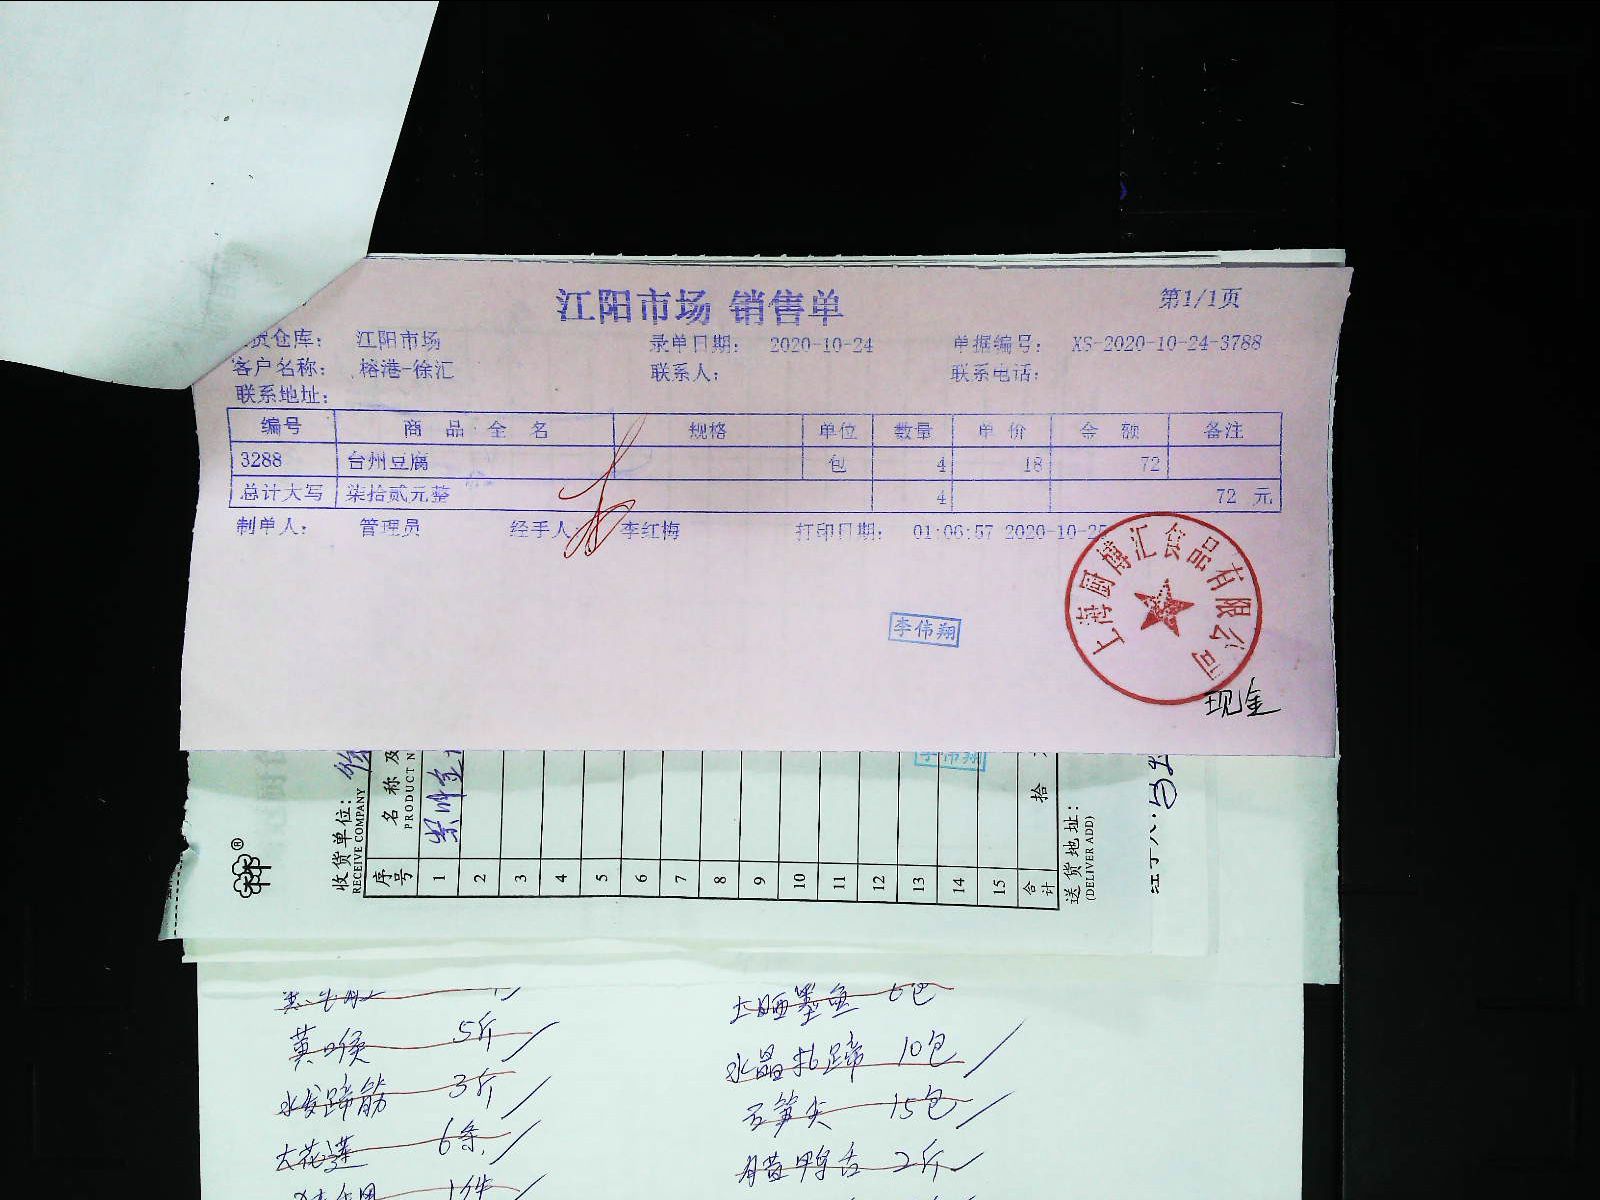 江阳市场 销售单
第1/1页
货仓库： 江阳市场 录单日期： 2020-10-24 单据编号： XS-2020-10-24-3788
客户名称： 榕港-徐汇 联系人： 联系电话：
联系地址：
编号 商品全名 规格 单位 数量 单价 金额 备注
3288 台州豆腐 包 4 18 72
总计大写 柒拾贰元整 4 72 元
制单人： 管理员 经手人： 李红梅 打印日期： 01:06:57 2020-10-25
上海厨博汇食品有限公司
李伟翔
现金
李伟翔
收货单位：
RECEIVE COMPANY
序号 名称及
PRODUCT N
1 2 3 4 5 6 7 8 9 10 11 12 13 14 15
合计 拾
送货地址：
(DELIVER ADD)
黄喉 5斤
水发蹄筋 3斤
大花莲 6条
1件
土晒墨鱼 6包
水晶扎蹄 10包
石笋尖 15包
鸭舌 2斤